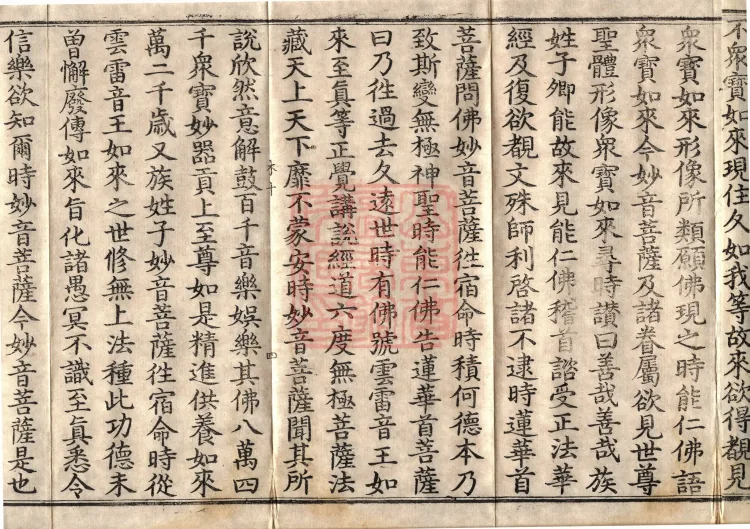 不衆寶如來現住久如我等故來欲得覩見
衆寶如來形像所類願佛現之時能仁佛語
衆寶如來今妙音菩薩及諸眷屬欲見世尊
聖體形像衆寶如來尋時讃曰善哉善哉族
姓子卿能故來見能仁佛稽首諮受正法華
經及復欲覩文殊師利啓諸不逮時蓮華首
菩薩問佛妙音菩薩徃宿命時積何德本乃
致斯變無極神聖時能仁佛告蓮華首菩薩
曰乃徃過去久遠世時有佛號雲雷音王如
來至真等正覺講說經道六度無極菩薩法
藏天上天下靡不蒙安時妙音菩薩聞其所
說欣然意解鼓百千音樂娛樂其佛八萬四
千衆寶妙器貢上至尊如是精進供養如來
萬二千歳又族姓子妙音菩薩徃宿命時從
雲雷音王如來之世修無上法種此功德未
曽懈廢傳如來旨化諸愚冥不識至真悉令
信樂欲知爾時妙音菩薩今妙音菩薩是也